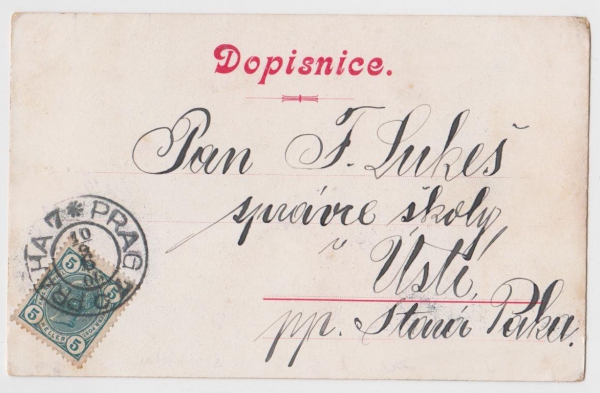 Dopisnice.
Pan F. Lukeš
správce školy
v Ústí,
pp. Stará Paka.
PRAHA 7 * PRAG 7
5 5
5 HELLER 5